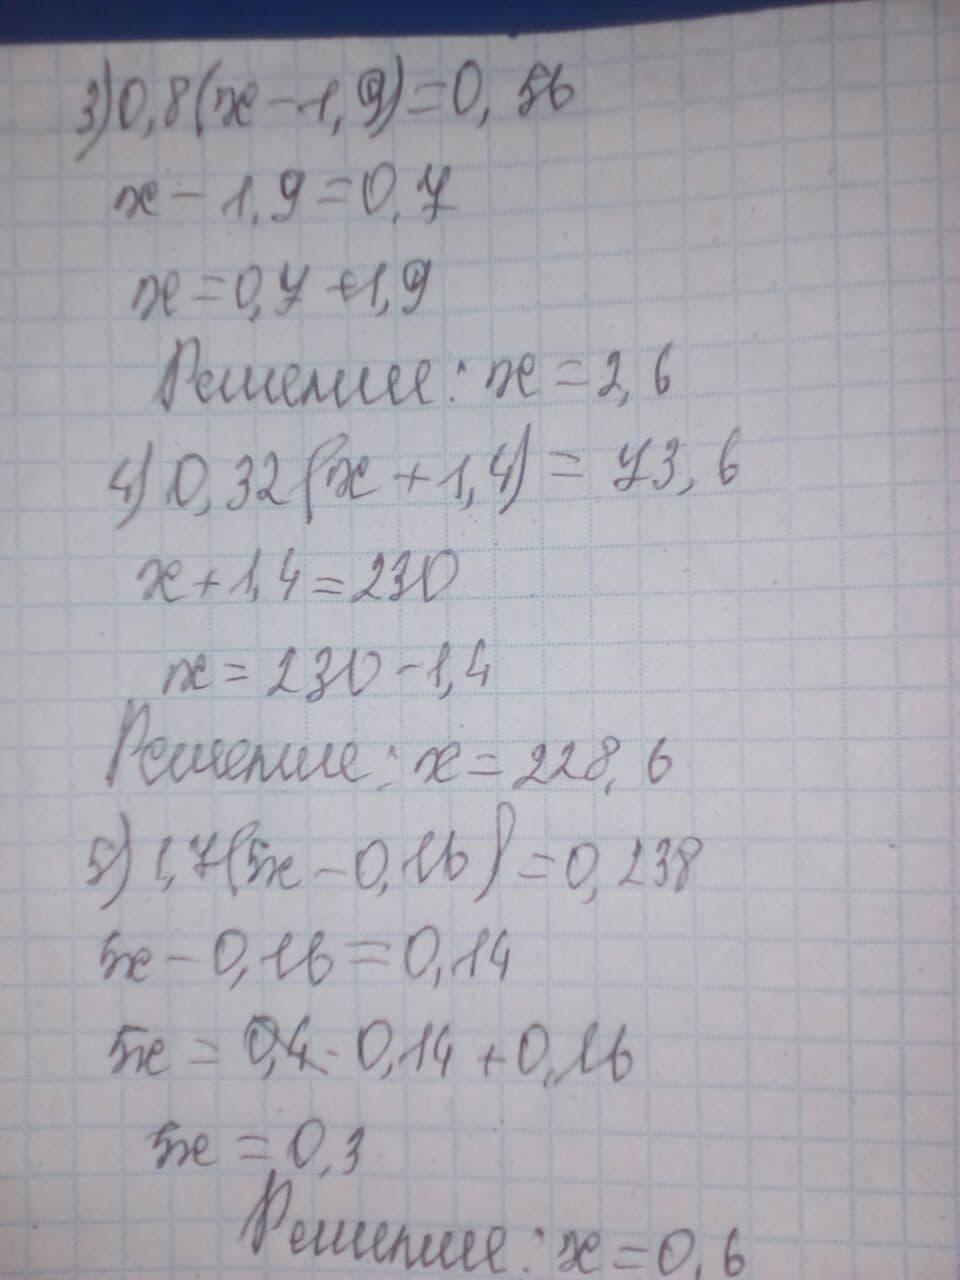 3) 0,8(x-1,9)=0,56
x-1,9=0,7
x=0,7+1,9
Решение: x=2,6
4) 0,32(x+1,4)=73,6
x+1,4=230
x=230-1,4
Решение: x=228,6
5) 1,7(5x-0,16)=0,238
5x-0,16=0,14
5x=0,14+0,16
5x=0,3
Решение: x=0,6